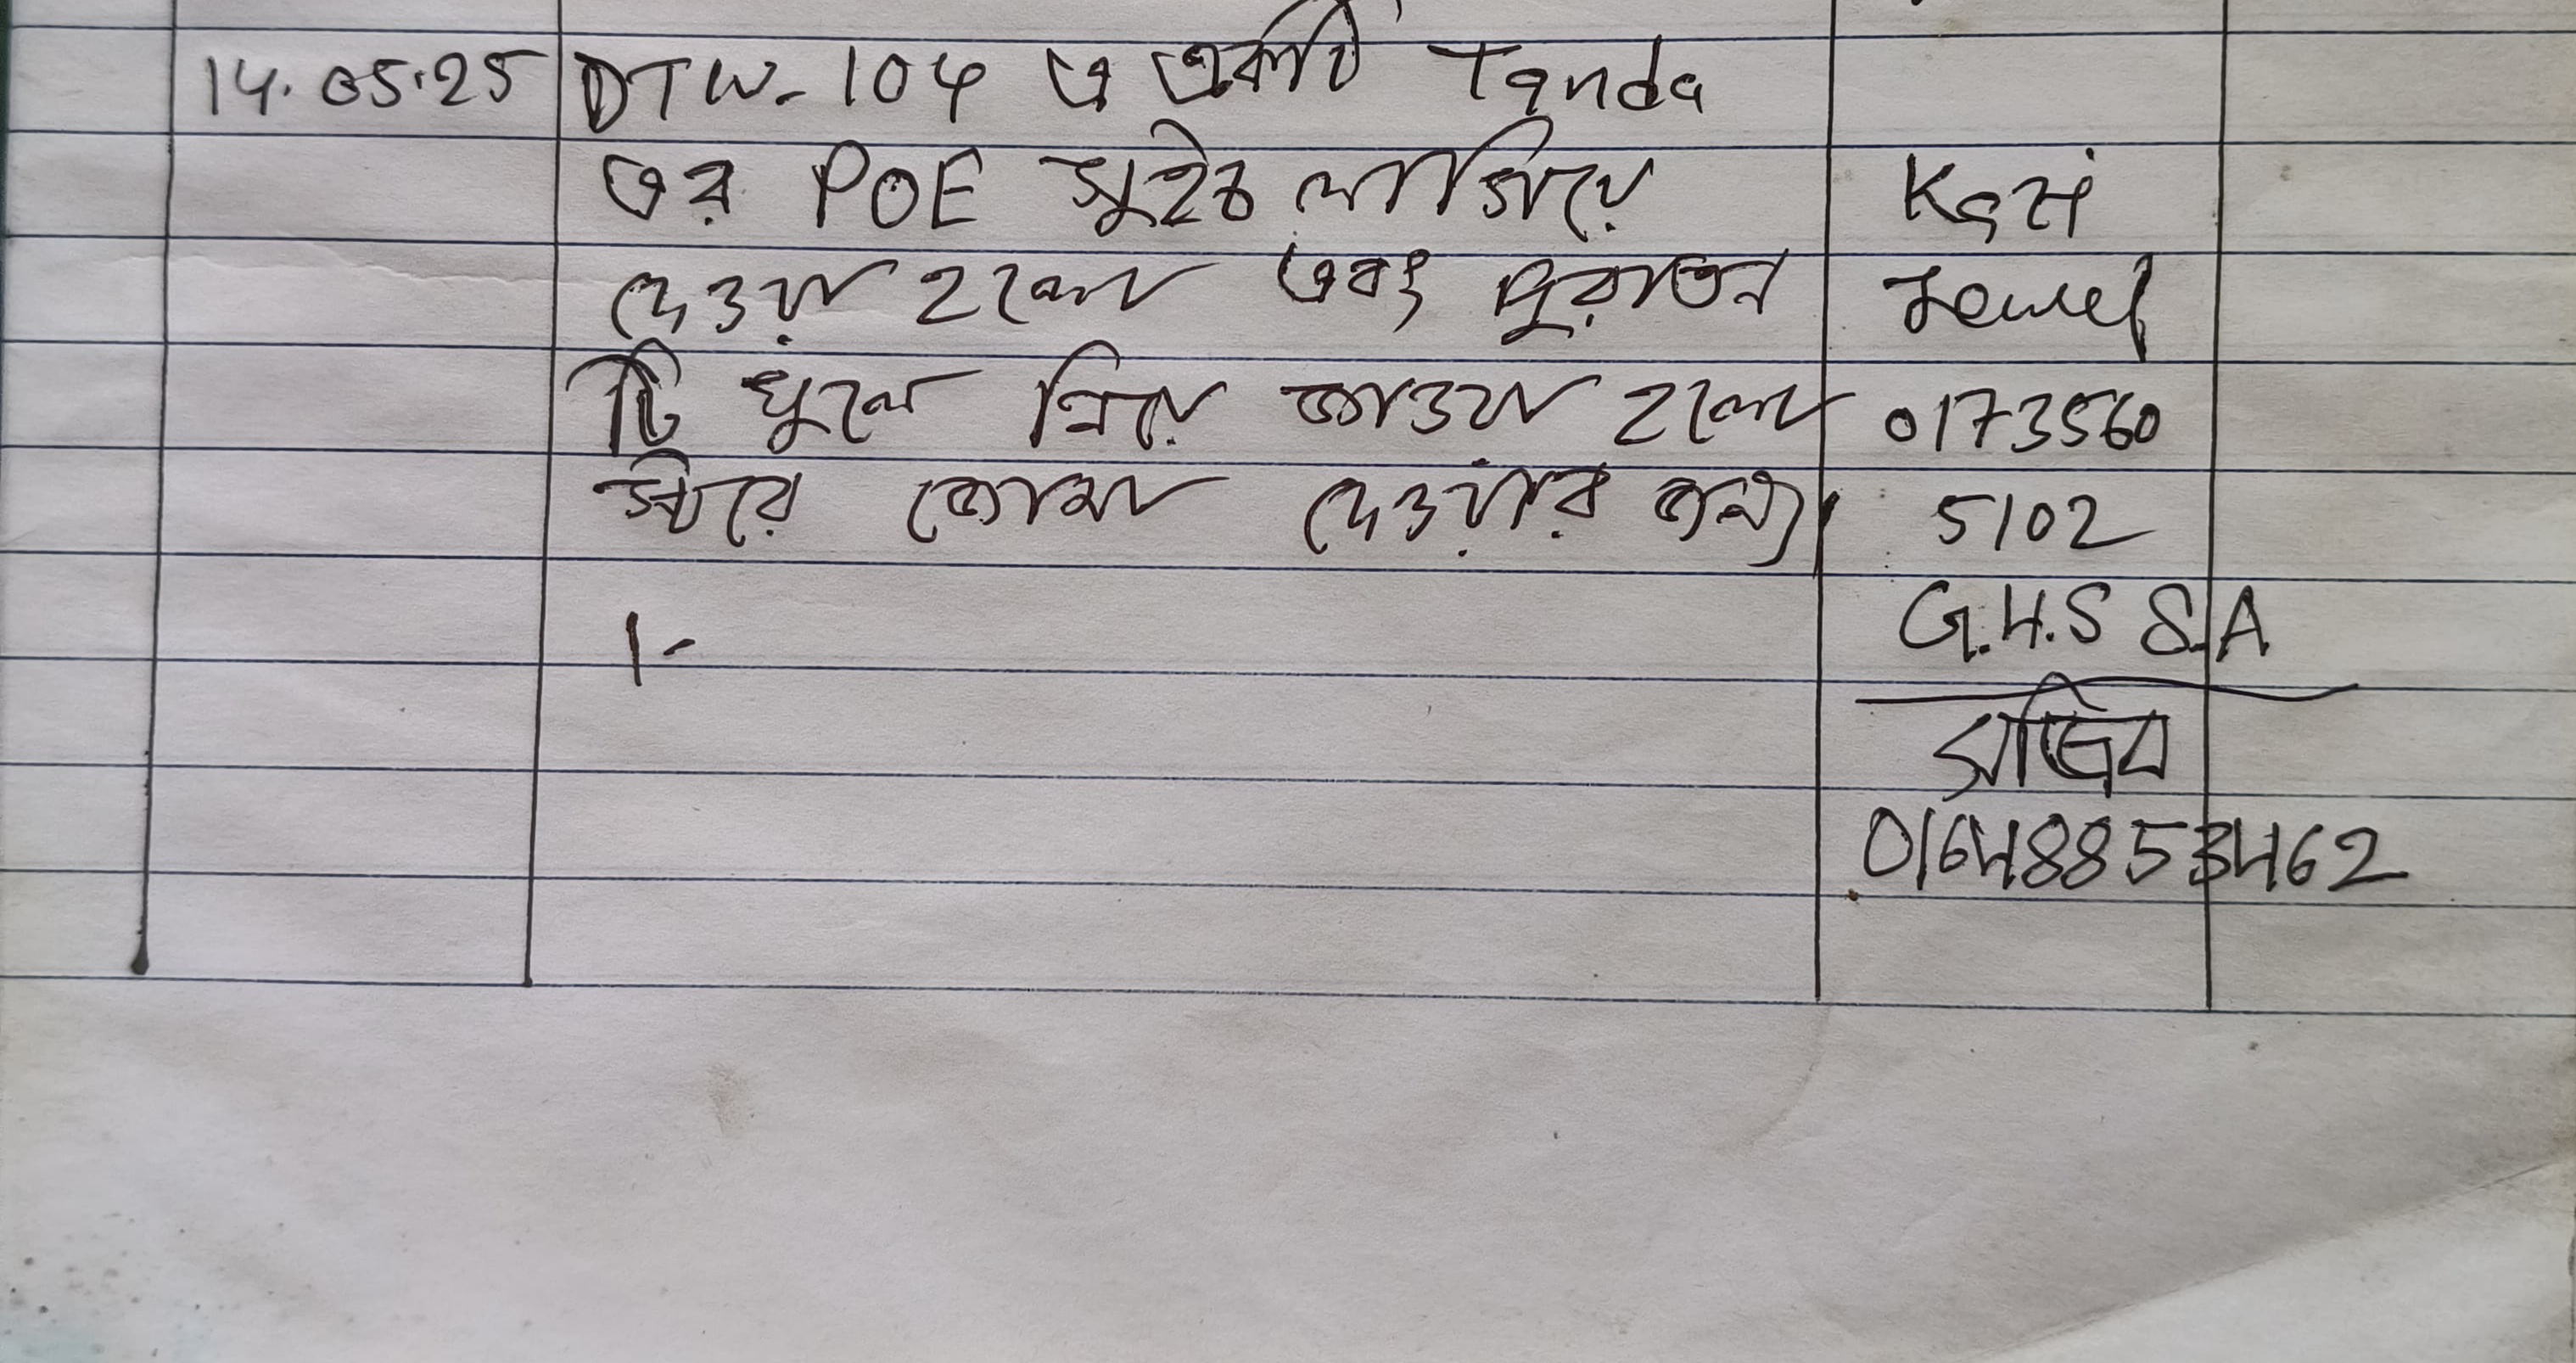 14.05.25 DTW-104 এ একটি Tanda
এর POE সুইচ লাগিয়ে
দেওয়া হলো এবং পুরাতন
টি খুলে নিয়ে যাওয়া হলো
স্টোরে জমা দেওয়ার জন্য
।-
Kazi
Jewel
0173560
5102
G.H.S S.A
সাজিব
01648853462